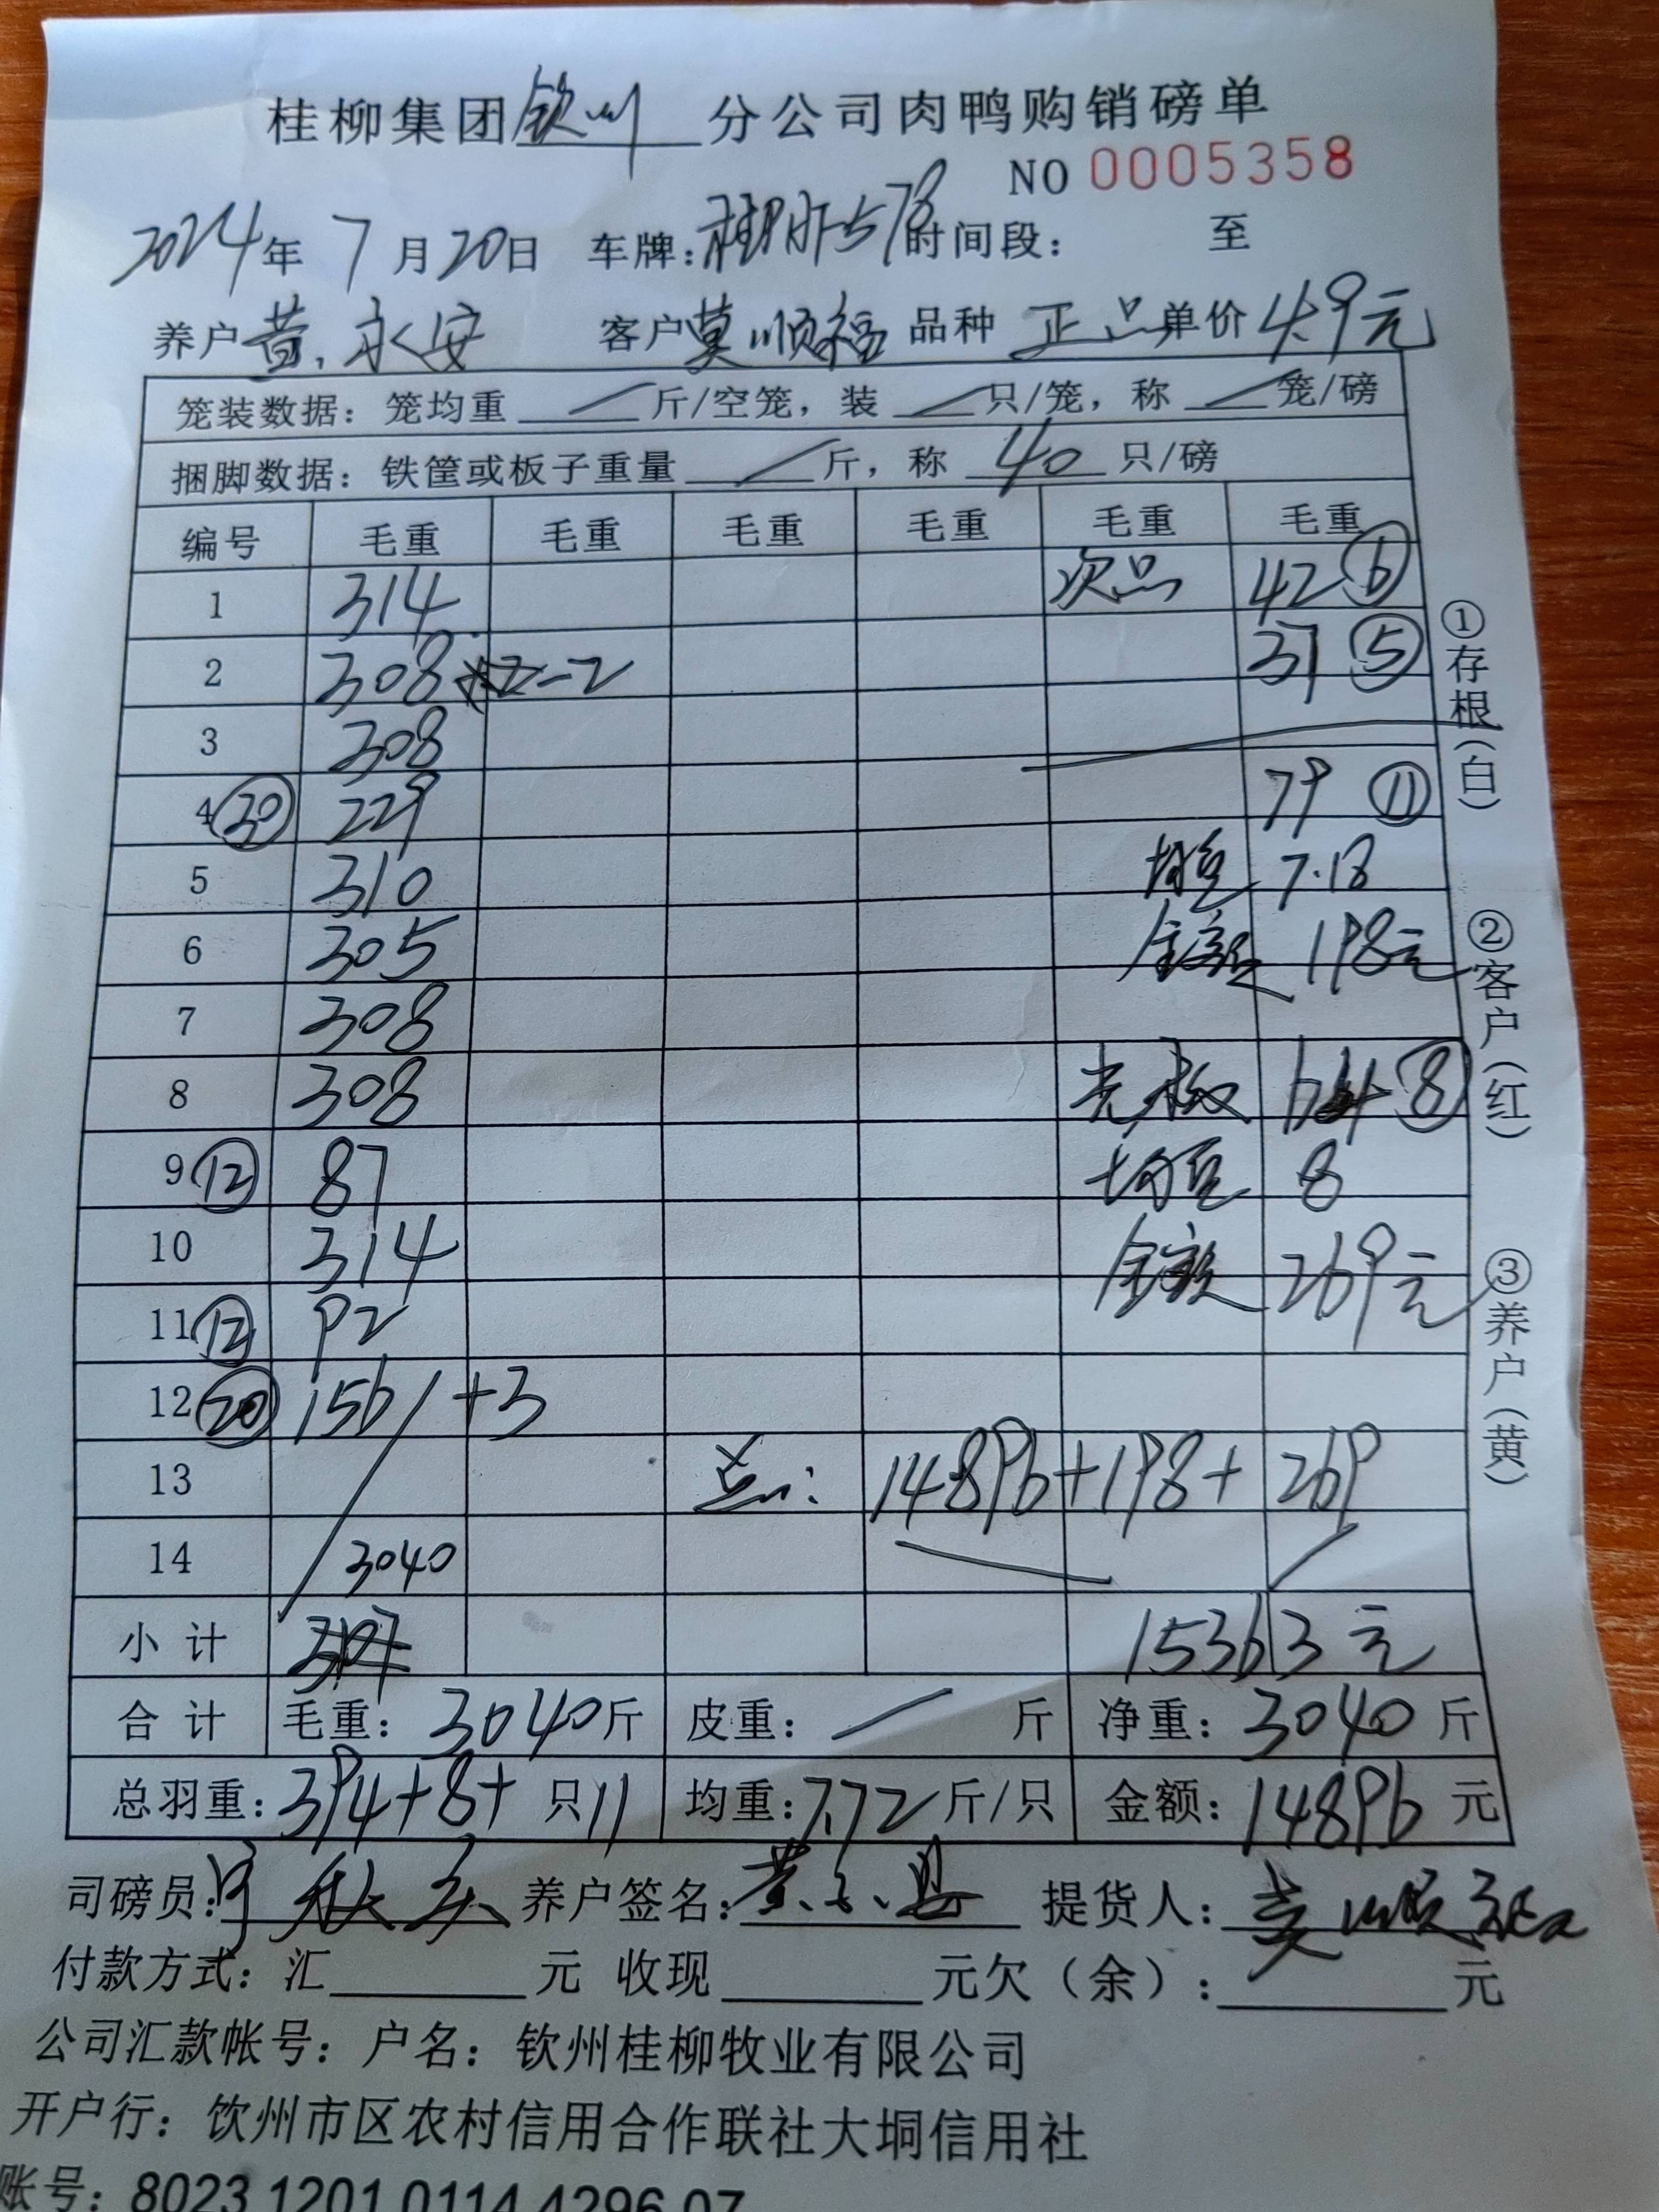 桂柳集团钦州分公司肉鸭购销磅单
NO 0005358
2024年 7月20日 车牌: 时间段: 至
养户黄永安 客户莫顺福 品种 正品 单价4.9元
笼装数据: 笼均重 / 斤/空笼, 装 / 只/笼, 称 / 笼/磅
捆脚数据: 铁筐或板子重量 / 斤, 称 40 只/磅
编号 毛重 毛重 毛重 毛重 毛重 毛重
1 314 次品 42 ⑥
2 308 -2 37 ⑤
3 308
4 ㉚ 229 79 ⑪
5 310 均重 7.18
6 305 金额 198元
7 308
8 308 64 ⑧
9 ⑫ 87 均重 8
10 314 金额 269元
11 ⑫ 92
12 ⑳ 156 +3
13 总: 14896+198+269
14 3040
小计 15363元
合计 毛重: 3040斤 皮重: / 斤 净重: 3040斤
总羽重: 394+8+ 只11 均重: 7.72斤/只 金额: 14896元
司磅员: 养户签名: 黄 提货人: 莫顺福
付款方式: 汇 元 收现 元欠(余): 元
公司汇款帐号: 户名: 钦州桂柳牧业有限公司
开户行: 钦州市区农村信用合作联社大垌信用社
账号: 8023 1201 0114 4296 07
①存根(白)
②客户(红)
③养户(黄)